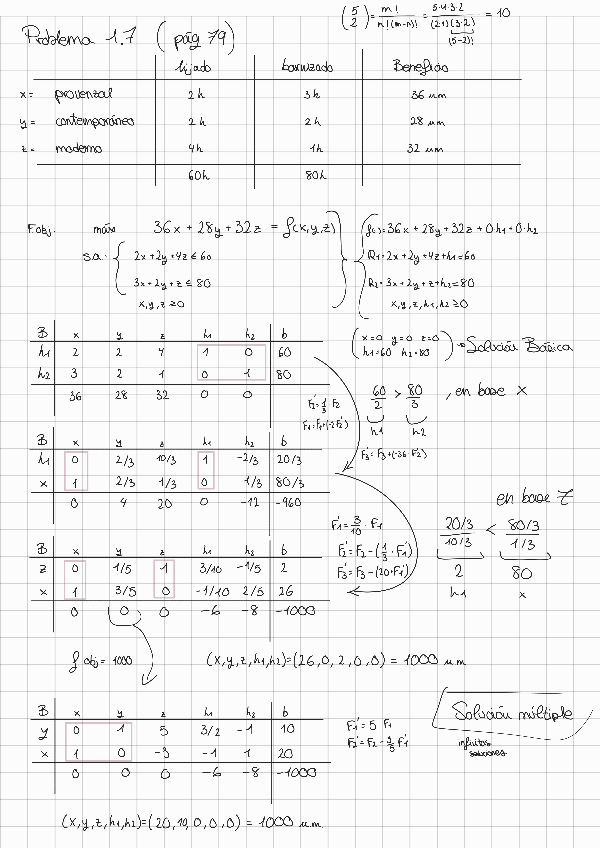 (5 2) = m!/n!(m-n)! = 5·4·3·2/(2·1)(3·2) = 10
(5-2)!
Problema 1.7 (pág 79)
lijado barnizado Beneficio
x = provenzal 2h 3h 36 um
y = contemporáneo 2h 2h 28 um
z = moderno 4h 1h 32 um
60h 80h
F.obj: máx 36x + 28y + 32z = f(x,y,z)
s.a: 2x + 2y + 4z ≤ 60
3x + 2y + z ≤ 80
x,y,z ≥ 0
f(·) = 36x + 28y + 32z + 0·h1 + 0·h2
R1 = 2x + 2y + 4z + h1 = 60
R2 = 3x + 2y + z + h2 = 80
x,y,z,h1,h2 ≥ 0
B x y z h1 h2 b
h1 2 2 4 1 0 60
h2 3 2 1 0 1 80
36 28 32 0 0
(x=0 y=0 z=0 h1=60 h2=80) → Solución Básica
60/2 > 80/3 , en base x
h1 h2
F2' = 1/3 F2
F1' = F1 + (-2F2')
F3' = F3 + (-36·F2')
B x y z h1 h2 b
h1 0 2/3 10/3 1 -2/3 20/3
x 1 2/3 1/3 0 1/3 80/3
0 4 20 0 -12 -960
en base z
20/3 / 10/3 < 80/3 / 1/3
2 80
h1 x
F1' = 3/10 · F1
F2' = F2 - (1/3 · F1')
F3' = F3 - (20·F1')
B x y z h1 h2 b
z 0 1/5 1 3/10 -1/5 2
x 1 3/5 0 -1/10 2/5 26
0 0 0 -6 -8 -1000
f obj = 1000 (x,y,z,h1,h2) = (26,0,2,0,0) = 1000 u.m
B x y z h1 h2 b
y 0 1 5 3/2 -1 10
x 1 0 -3 -1 1 20
0 0 0 -6 -8 -1000
F1' = 5 F1
F2' = F2 - 3/5 F1'
Solución múltiple
infinitas
soluciones
(x,y,z,h1,h2) = (20,10,0,0,0) = 1000 u.m.